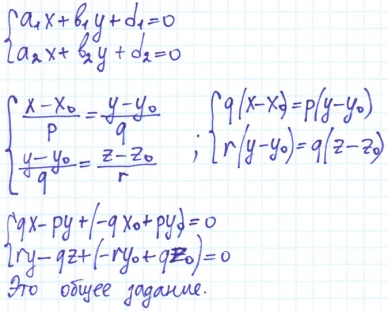 {a₁x + b₁y + d₁ = 0
{a₂x + b₂y + d₂ = 0
{(x-x₀)/p = (y-y₀)/q ; {q(x-x₀) = p(y-y₀)
{(y-y₀)/q = (z-z₀)/r ; {r(y-y₀) = q(z-z₀)
{qx - py + (-qx₀ + py₀) = 0
{ry - qz + (-ry₀ + qz₀) = 0
Это общее задание.